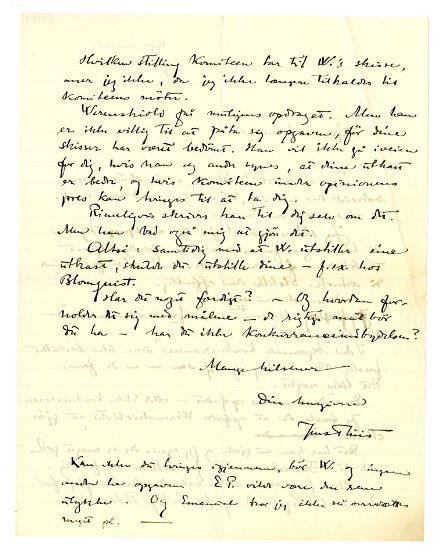 Hvilken stilling Komiteen har til W.'s skisse,
aner jeg ikke, da jeg ikke længere tilkaldes til
Komiteens møter.
Werenskiold får muligens opdraget. Men han
er ikke villig til at påta sig opgaven, før dine
skisser har været bedømt. Han vil ikke gå iveien
for dig, hvis han og andre synes, at dine utkast
er bedre, og hvis Komiteen under opinionens
pres kan tvinges til at ta dig.
Rimeligvis skriver han til dig selv om det.
Men han bad også mig at gjøre det.
Altså: samtidig med at W. utstiller sine
utkast, skulde du utstille dine – f. ex. hos
Blomquist.
Har du noget færdigt? – Og hvordan for-
holder det sig med målene – de rigtige mål bør
du ha – har du ikke Konkurranceindbydelsen?
Mange hilsener
Din hengivne
Jens Thiis
Kan ikke du bringes igjennem, bør W. og ingen
anden ha opgaven. E. P. vilde være den rene
ulykke. Og Emanuel tror jeg ikke
meget på.